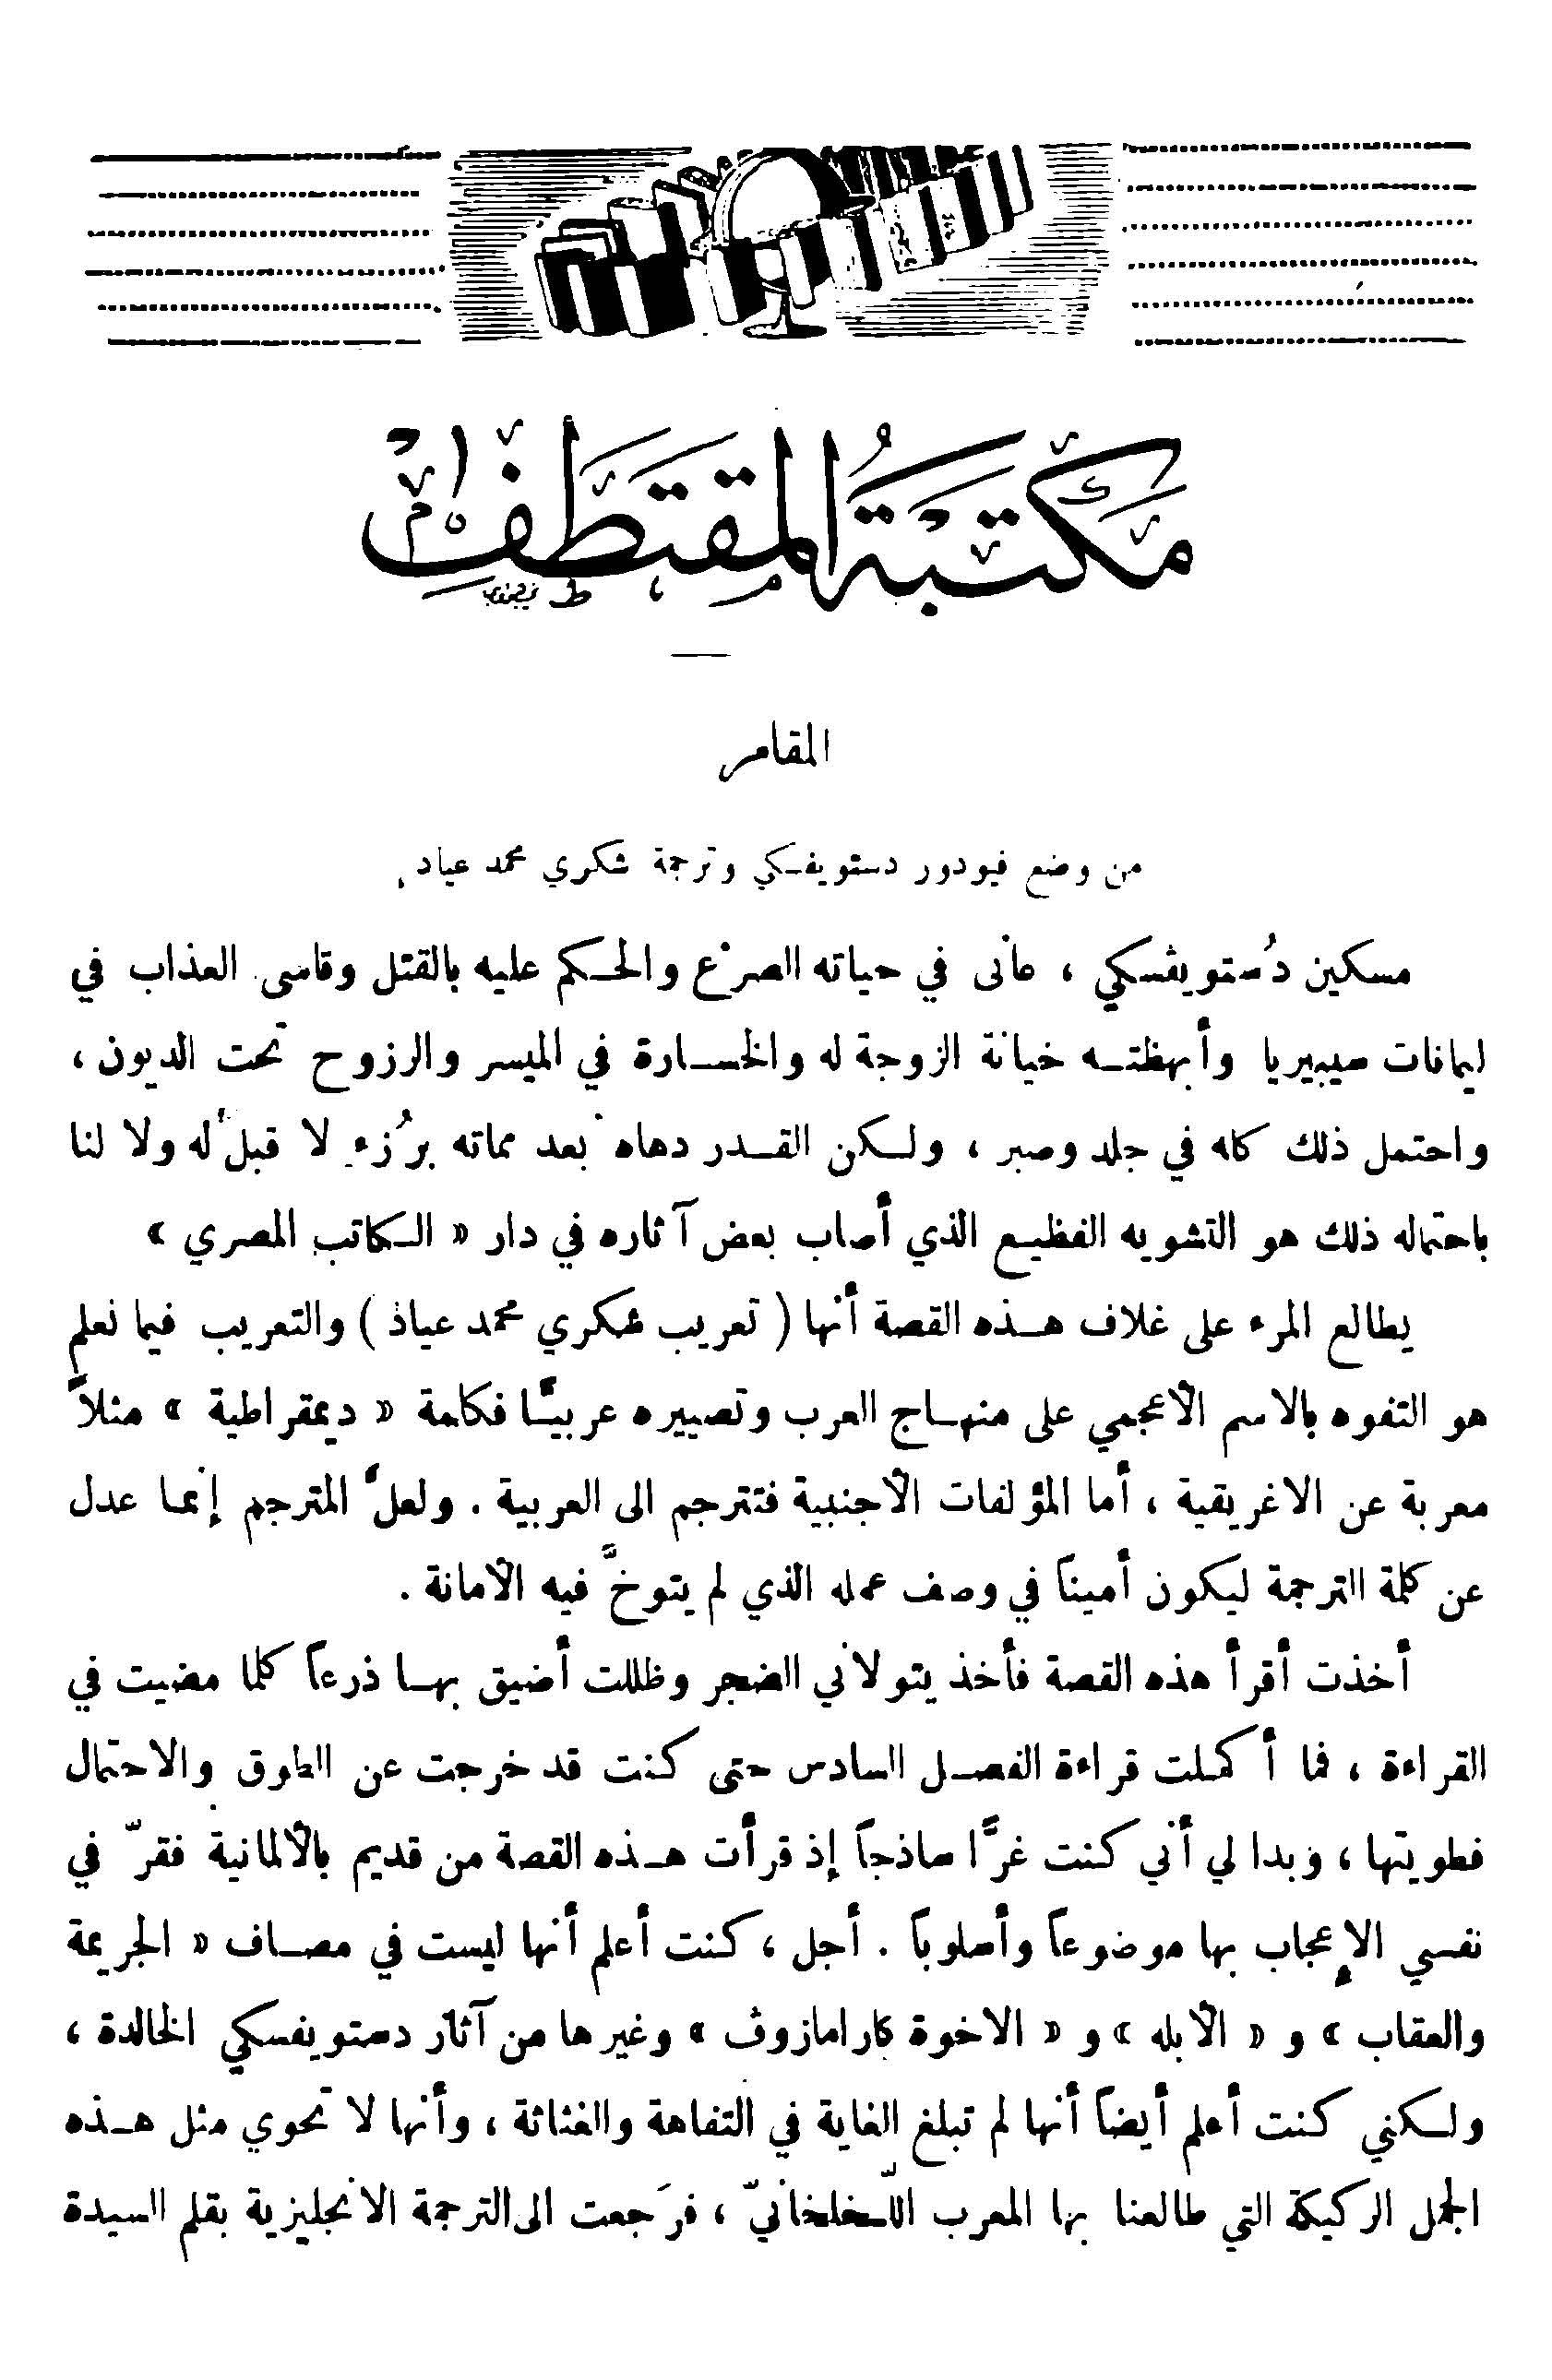 مكتبة المقتطف
المقامر
من وضع فيودور دستويفسكي وترجمة شكري محمد عياد
مسكين دُستويڤسكي ، عانى في حياته الصرْع والحكم عليه بالقتل وقاسى العذاب في
ليمانات سيبيريا وأبهظته خيانة الزوجة له والخسارة في الميسر والرزوح تحت الديون ،
واحتمل ذلك كله في جلد وصبر ، ولكن القدر دهاه بعد مماته برُزء لا قبل له ولا لنا
باحتماله ذلك هو التشويه الفظيع الذي أصاب بعض آثاره في دار « الكاتب المصري »
يطالع المرء على غلاف هذه القصة أنها ( تعريب شكري محمد عياد ) والتعريب فيما نعلم
هو التفوه بالاسم الأعجمي على منهاج العرب وتصييره عربيًّا فكلمة « ديمقراطية » مثلاً
معربة عن الاغريقية ، أما المؤلفات الأجنبية فتترجم الى العربية . ولعلَّ المترجم إنما عدل
عن كلمة الترجمة ليكون أميناً في وصف عمله الذي لم يتوخَّ فيه الأمانة .
أخذت أقرأ هذه القصة فأخذ يتولاني الضجر وظللت أضيق بها ذرعاً كلما مضيت في
القراءة ، فما أكملت قراءة الفصل السادس حتى كنت قد خرجت عن الطوق والاحتمال
فطويتها ، وبدا لي أني كنت غرًّا ساذجاً إذ قرأت هذه القصة من قديم بالألمانية فقرّ في
نفسي الإعجاب بها موضوعاً وأسلوباً . أجل ، كنت أعلم أنها ليست في مصاف « الجريمة
والعقاب » و « الأبله » و « الاخوة كارامازوف » وغيرها من آثار دستويفسكي الخالدة ،
ولكني كنت أعلم أيضاً أنها لم تبلغ الغاية في التفاهة والغثاثة ، وأنها لا تحوي مثل هذه
الجمل الركيكة التي طالعنا بها المعرب اللّخلخانيّ ، فرَجعت الى الترجمة الانجليزية بقلم السيدة